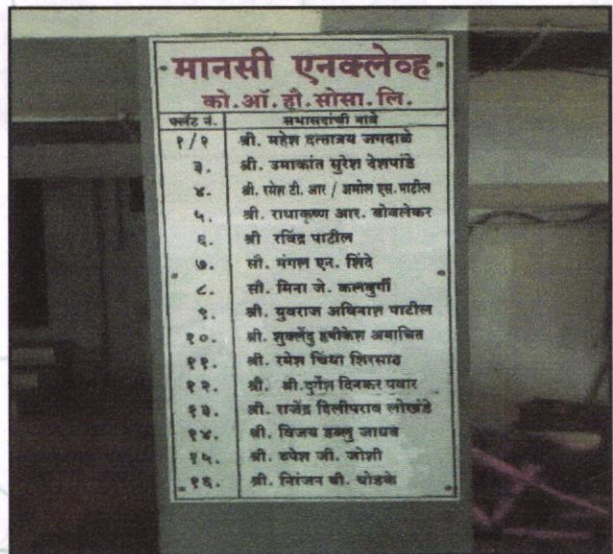 मानसी एनक्लेव्ह
को.ऑ.हौ.सोसा.लि.
फ्लॅट नं. सभासदांची नावे
१/२ श्री. महेश दत्तात्रय जगदाळे
३. श्री. उमाकांत सुरेश देशपांडे
४. श्री. रमेश टी. आर / अमोल एस. पाटील
५. श्री. राधाकृष्ण आर. बोबलेकर
६. श्री रविंद्र पाटील
७. सौ. मंगल एन. शिंदे
८. सौ. मिना जे. कलबुर्गी
९. श्री. युवराज अविनाश पाटील
१०. श्री. शुक्लेंदु हृषीकेश अयाचित
११. श्री. रमेश चिंधा शिरसाठ
१२. श्री. श्री.दुर्गेश दिनकर पवार
१३. श्री. राजेंद्र दिलीपराव लोखंडे
१४. श्री. विजय डब्लु जाधव
१५. श्री. रुपेश जी. जोशी
१६. श्री. निरंजन बी. घोडके